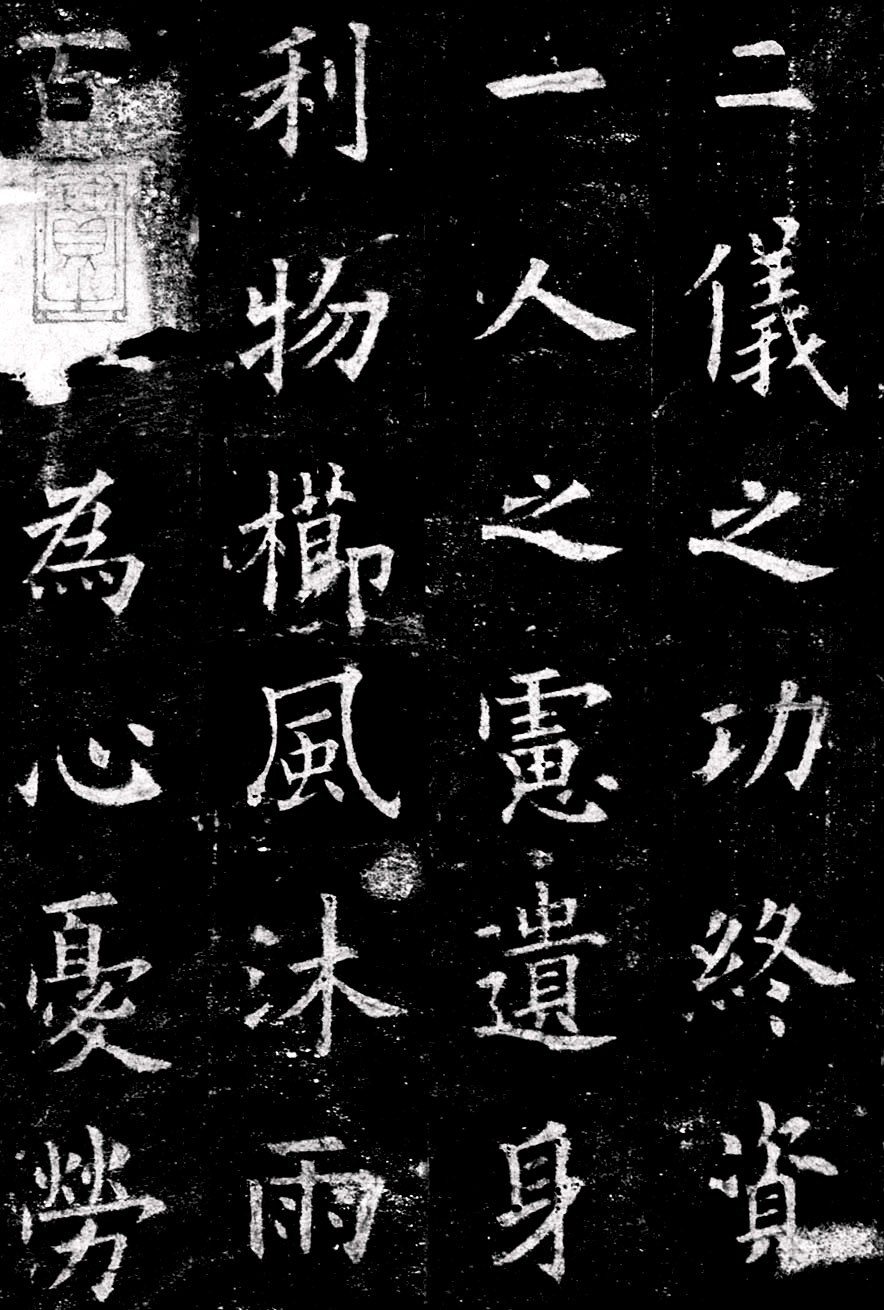 二儀之功終資
一人之慮遺身
利物櫛風沐雨
百為心憂勞